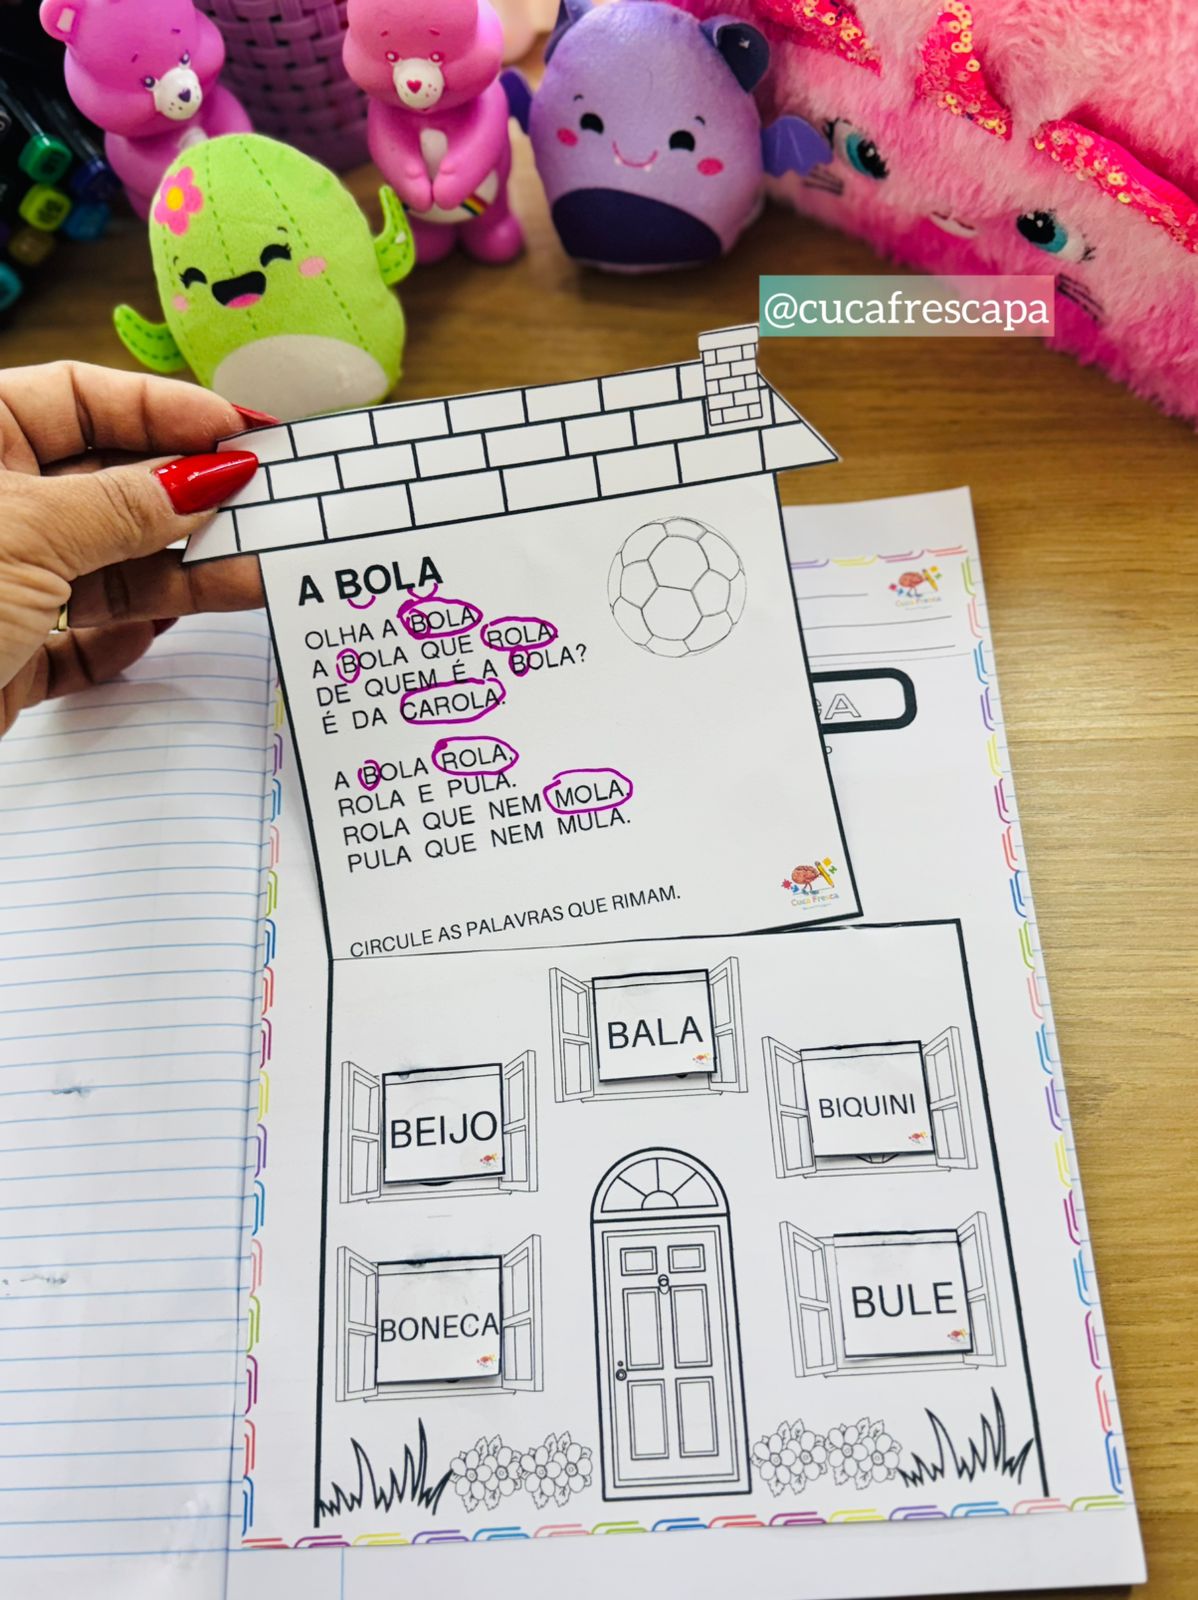 @cucafrescapa
A BOLA
OLHA A BOLA
A BOLA QUE ROLA.
DE QUEM É A BOLA?
É DA CAROLA.
A BOLA ROLA,
ROLA E PULA.
ROLA QUE NEM MOLA,
PULA QUE NEM MULA.
CIRCULE AS PALAVRAS QUE RIMAM.
Cuca Fresca
Cuca Fresca
BALA
BEIJO
BIQUINI
BONECA
BULE